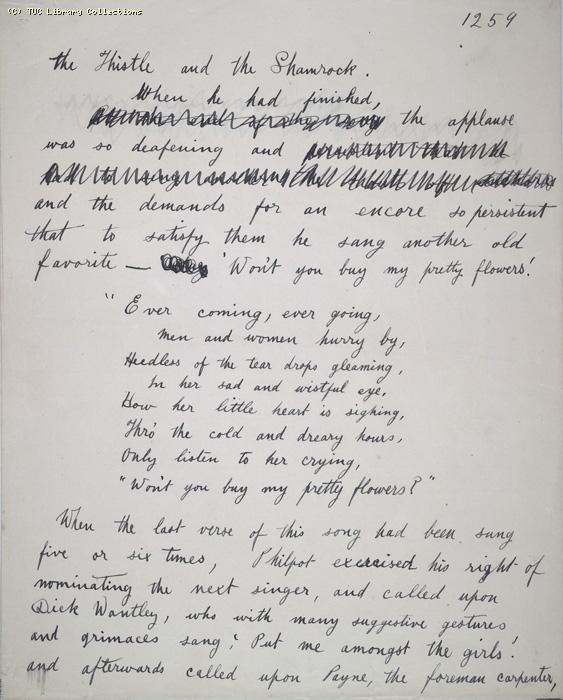 (C) TUC Library Collections
1259
the Thistle and the Shamrock.
When he had finished,
the applause
was so deafening and
and the demands for an encore so persistent
that to satisfy them he sang another old
favorite — 'Won't you buy my pretty flowers!'
"Ever coming, ever going,
Men and women hurry by,
Heedless of the tear drops gleaming,
In her sad and wistful eye,
How her little heart is sighing,
Thro' the cold and dreary hours,
Only listen to her crying,
"Won't you buy my pretty flowers?"
When the last verse of this song had been sung
five or six times, Philpot exercised his right of
nominating the next singer, and called upon
Dick Wantley, who with many suggestive gestures
and grimaces sang; 'Put me amongst the girls!'
and afterwards called upon Payne, the foreman carpenter,